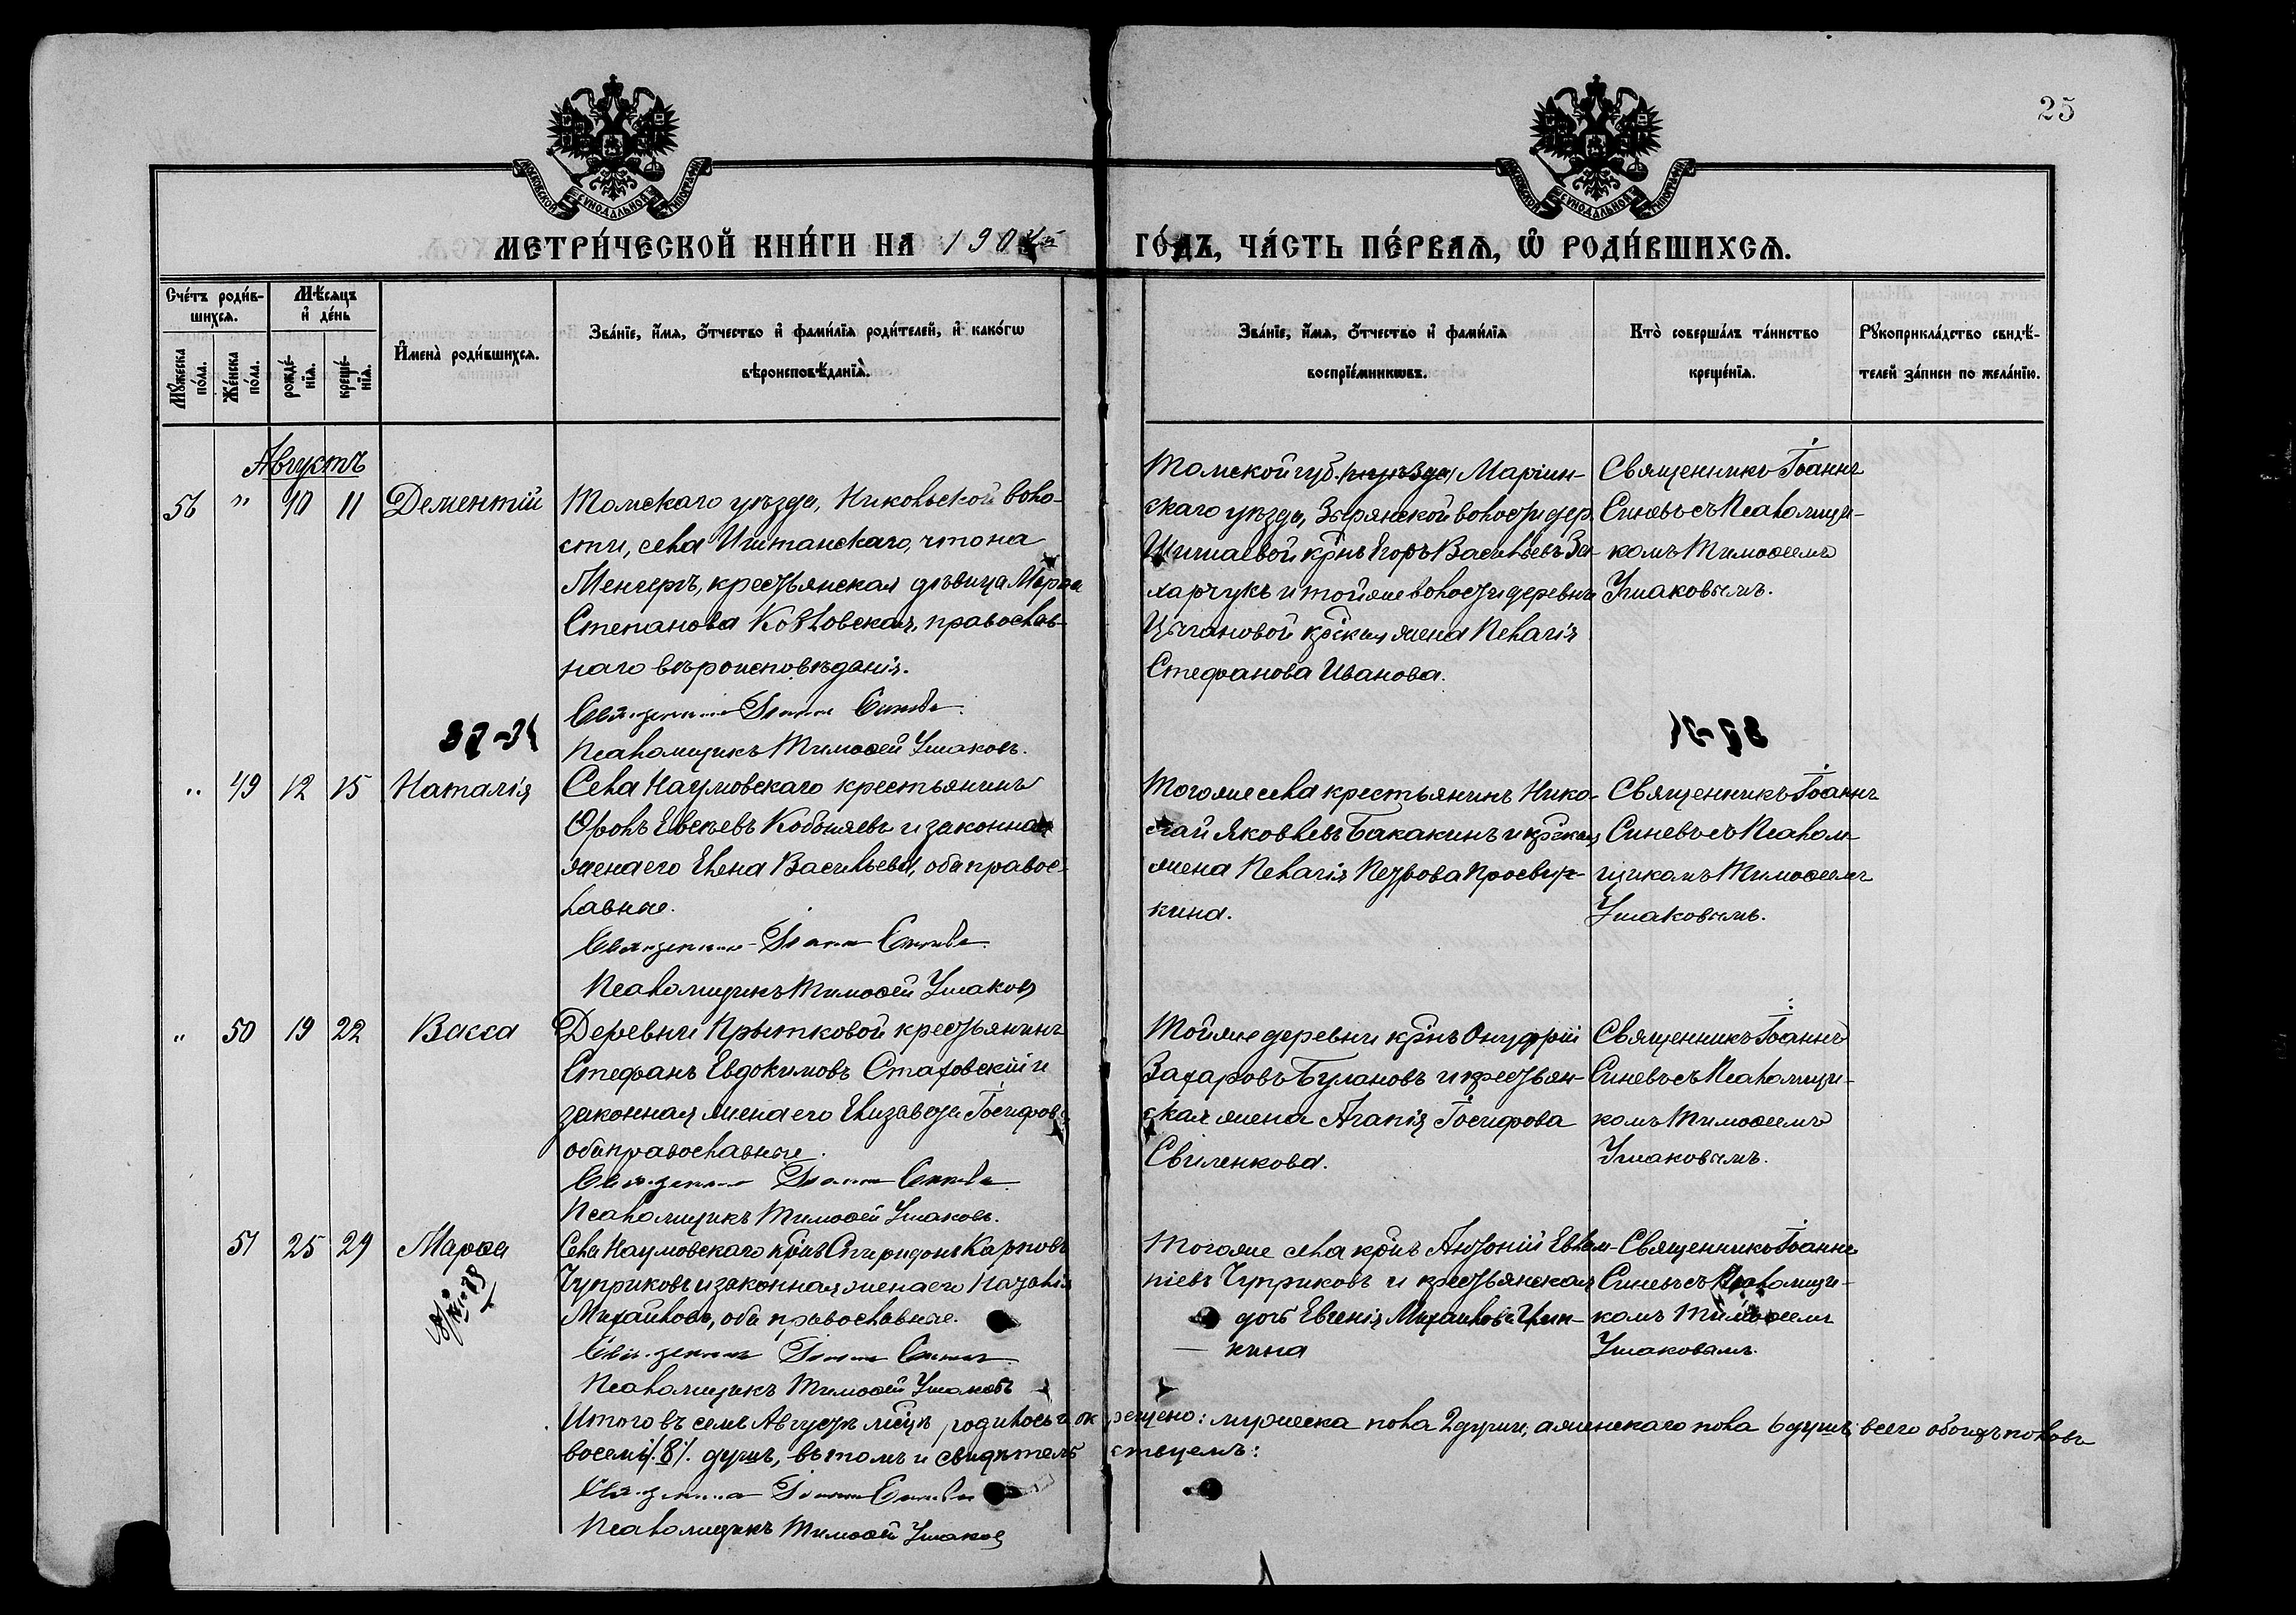 25
МОСКОВСКОЙ СѴНОДАЛЬНОЙ ТИПОГРАФІИ
МОСКОВСКОЙ СѴНОДАЛЬНОЙ ТИПОГРАФІИ
МЕТРИ́ЧЕСКОЙ КНИ́ГИ НА 190 й
ГО́ДЪ, ЧА́СТЬ ПЕ́РВАѦ, Ѡ҆ РОДИ́ВШИХСѦ.
Сче́тъ роди́в-
шихсѧ.
Мѣ́сѧцъ
и҆ де́нь
Мꙋ́жеска
по́ла.
Же́нска
по́ла.
рожде́-
нїѧ.
креще́-
нїѧ.
И҆мена̀ роди́вшихсѧ.
Зва́нїе, и҆́мѧ, ѻ҆́тчество и҆ фами́лїѧ роди́телей, и҆ како́гѡ
вѣроисповѣ́данїѧ.
Зва́нїе, и҆́мѧ, ѻ҆́тчество и҆ фами́лїѧ
воспрїе́мникѡвъ.
Кто̀ соверша́лъ та́инство
креще́нїѧ.
Рꙋкоприкла́дство свидѣ́-
телей за́писи по жела́нїю.
Августъ
56 " 10 11 Дементій
Томскаго уѣзда, Никольской воло-
сти, села Иштанскаго, что на
Менгерѣ, крестьянская дѣвица Марѳа
Степанова Козловская, православ-
наго вѣроисповѣданія.
Священникъ Іоаннъ Синевъ.
Псаломщикъ Тимоѳей Ушаковъ.
Томской губ. Маріин-
скаго уѣзда, Зырянской волости дер.
Шиняевой крнъ Егоръ Васильевъ За-
харчукъ и тойже волости деревни
Цыгановой крская жена Пелагія
Стефанова Иванова.
Священникъ Іоаннъ
Синевъ съ Псаломщи-
комъ Тимоѳеемъ
Ушаковымъ.
" 49 12 15 Наталія
Села Наумовскаго крестьянинъ
Евсѣевъ и законная
жена его Елена Васильева, оба правос-
лавные.
Священникъ Іоаннъ Синевъ.
Псаломщикъ Тимоѳей Ушаковъ
Тогоже села крестьянинъ Нико-
лай Яковлевъ Бакакинъ и крская
жена Пелагія Петрова Просвир-
кина.
Священникъ Іоаннъ
Синевъ съ Псалом-
щикомъ Тимоѳеемъ
Ушаковымъ.
" 50 19 22 Васса
Деревни Прытковой крестьянинъ
Стефанъ Евдокимовъ Стаховскій и
законная жена его Елизавета Іосифова
оба православные.
Священникъ Іоаннъ Синевъ
Псаломщикъ Тимоѳей Ушаковъ.
Тойже деревни крнъ Онуфрій
Захаровъ Булановъ и крестьян-
ская жена Агапія Іосифова
Свиленкова.
Священникъ Іоаннъ
Синевъ съ Псаломщи-
комъ Тимоѳеемъ
Ушаковымъ.
51 25 29 Марѳа
Села Наумовскаго крнъ Спиридонъ Карповъ
Чуприковъ и законная жена его Наталія
Михайлова, оба православные.
Священникъ Іоаннъ Синевъ
Псаломщикъ Тимоѳей Ушаковъ
Тогоже села крнъ Антоній Евлам-
піевъ Чуприковъ и крестьянская
дочь Евгенія Михайлова
кина
Священникъ Іоаннъ
Синевъ съ Псаломщи-
комъ Тимоѳеемъ
Ушаковымъ.
Итого въ семъ Августѣ мсцѣ родилось и окрещено: мужеска пола 2 души, а женскаго пола 6 душъ; всего обоихъ половъ
восемь /8/. душъ, въ томъ и свидѣтельствуемъ:
Священникъ Іоаннъ Синевъ
Псаломщикъ Тимоѳей Ушаковъ